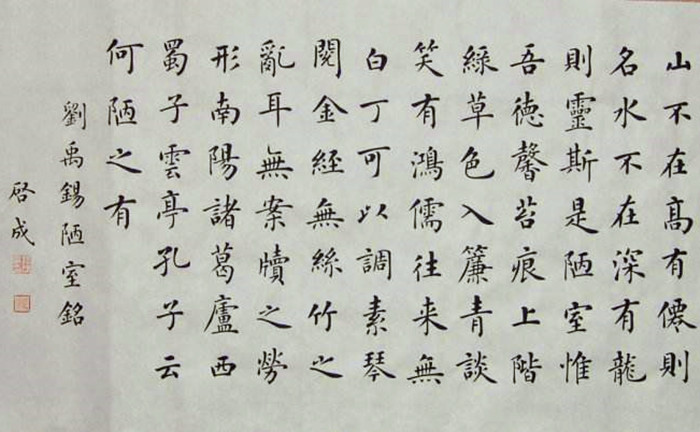 山不在高有僊則
名水不在深有龍
則靈斯是陋室惟
吾德馨苔痕上階
綠草色入簾青談
笑有鴻儒往来無
白丁可以調素琴
閱金經無絲竹之
亂耳無案牘之勞
形南陽諸葛廬西
蜀子雲亭孔子云
何陋之有
劉禹錫陋室銘
啓成